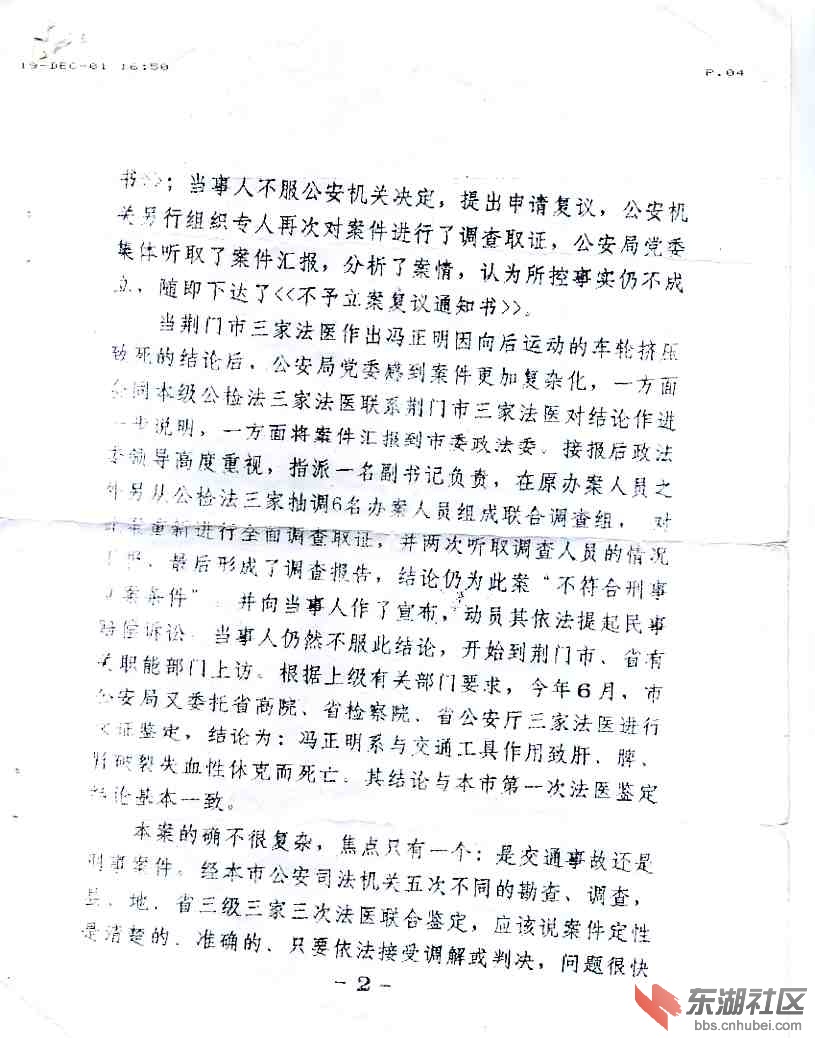 19-DEC-01 16:50
P.04
书>>；当事人不服公安机关决定，提出申请复议，公安机
关另行组织专人再次对案件进行了调查取证，公安局党委
集体听取了案件汇报，分析了案情，认为所控事实仍不成
立、随即下达了<<不予立案复议通知书>>。
当荆门市三家法医作出冯正明因向后运动的车轮挤压
致死的结论后，公安局党委感到案件更加复杂化，一方面
会同本级公检法三家法医联系荆门市三家法医对结论作进
一步说明，一方面将案件汇报到市委政法委。接报后政法
委领导高度重视，指派一名副书记负责，在原办案人员之
外另从公检法三家抽调6名办案人员组成联合调查组，对
重新进行全面调查取证，并两次听取调查人员的情况
最后形成了调查报告，结论仍为此案“不符合刑事
立案条件”并向当事人作了宣布，动员其依法提起民事
赔偿诉讼。当事人仍然不服此结论，开始到荆门市、省有
关职能部门上访。根据上级有关部门要求，今年6月，市
公安局又委托省高院、省检察院、省公安厅三家法医进行
证鉴定，结论为：冯正明系与交通工具作用致肝、脾、
肾破裂失血性休克而死亡。其结论与本市第一次法医鉴定
结论基本一致。
本案的确不很复杂，焦点只有一个：是交通事故还是
刑事案件。经本市公安司法机关五次不同的勘查、调查，
县、地、省三级三家三次法医联合鉴定，应该说案件定性
是清楚的、准确的、只要依法接受调解或判决，问题很快
-2-
东湖社区
bbs.cnhubei.com